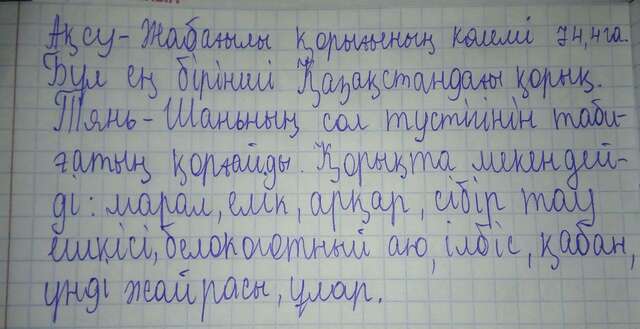 Ақсу-Жабағылы қорығының көлемі 74,4га.
Бұл ең бірінші Қазақстандағы қорық.
Тянь-Шаньның сол тустігінін таби-
ғатың қорғайды. Қорықта мекендей-
ді: марал, елік, арқар, сібір тау
ешкісі, белокоготный аю, ілбіс, қабан,
үнді жайрасы, ұлар.